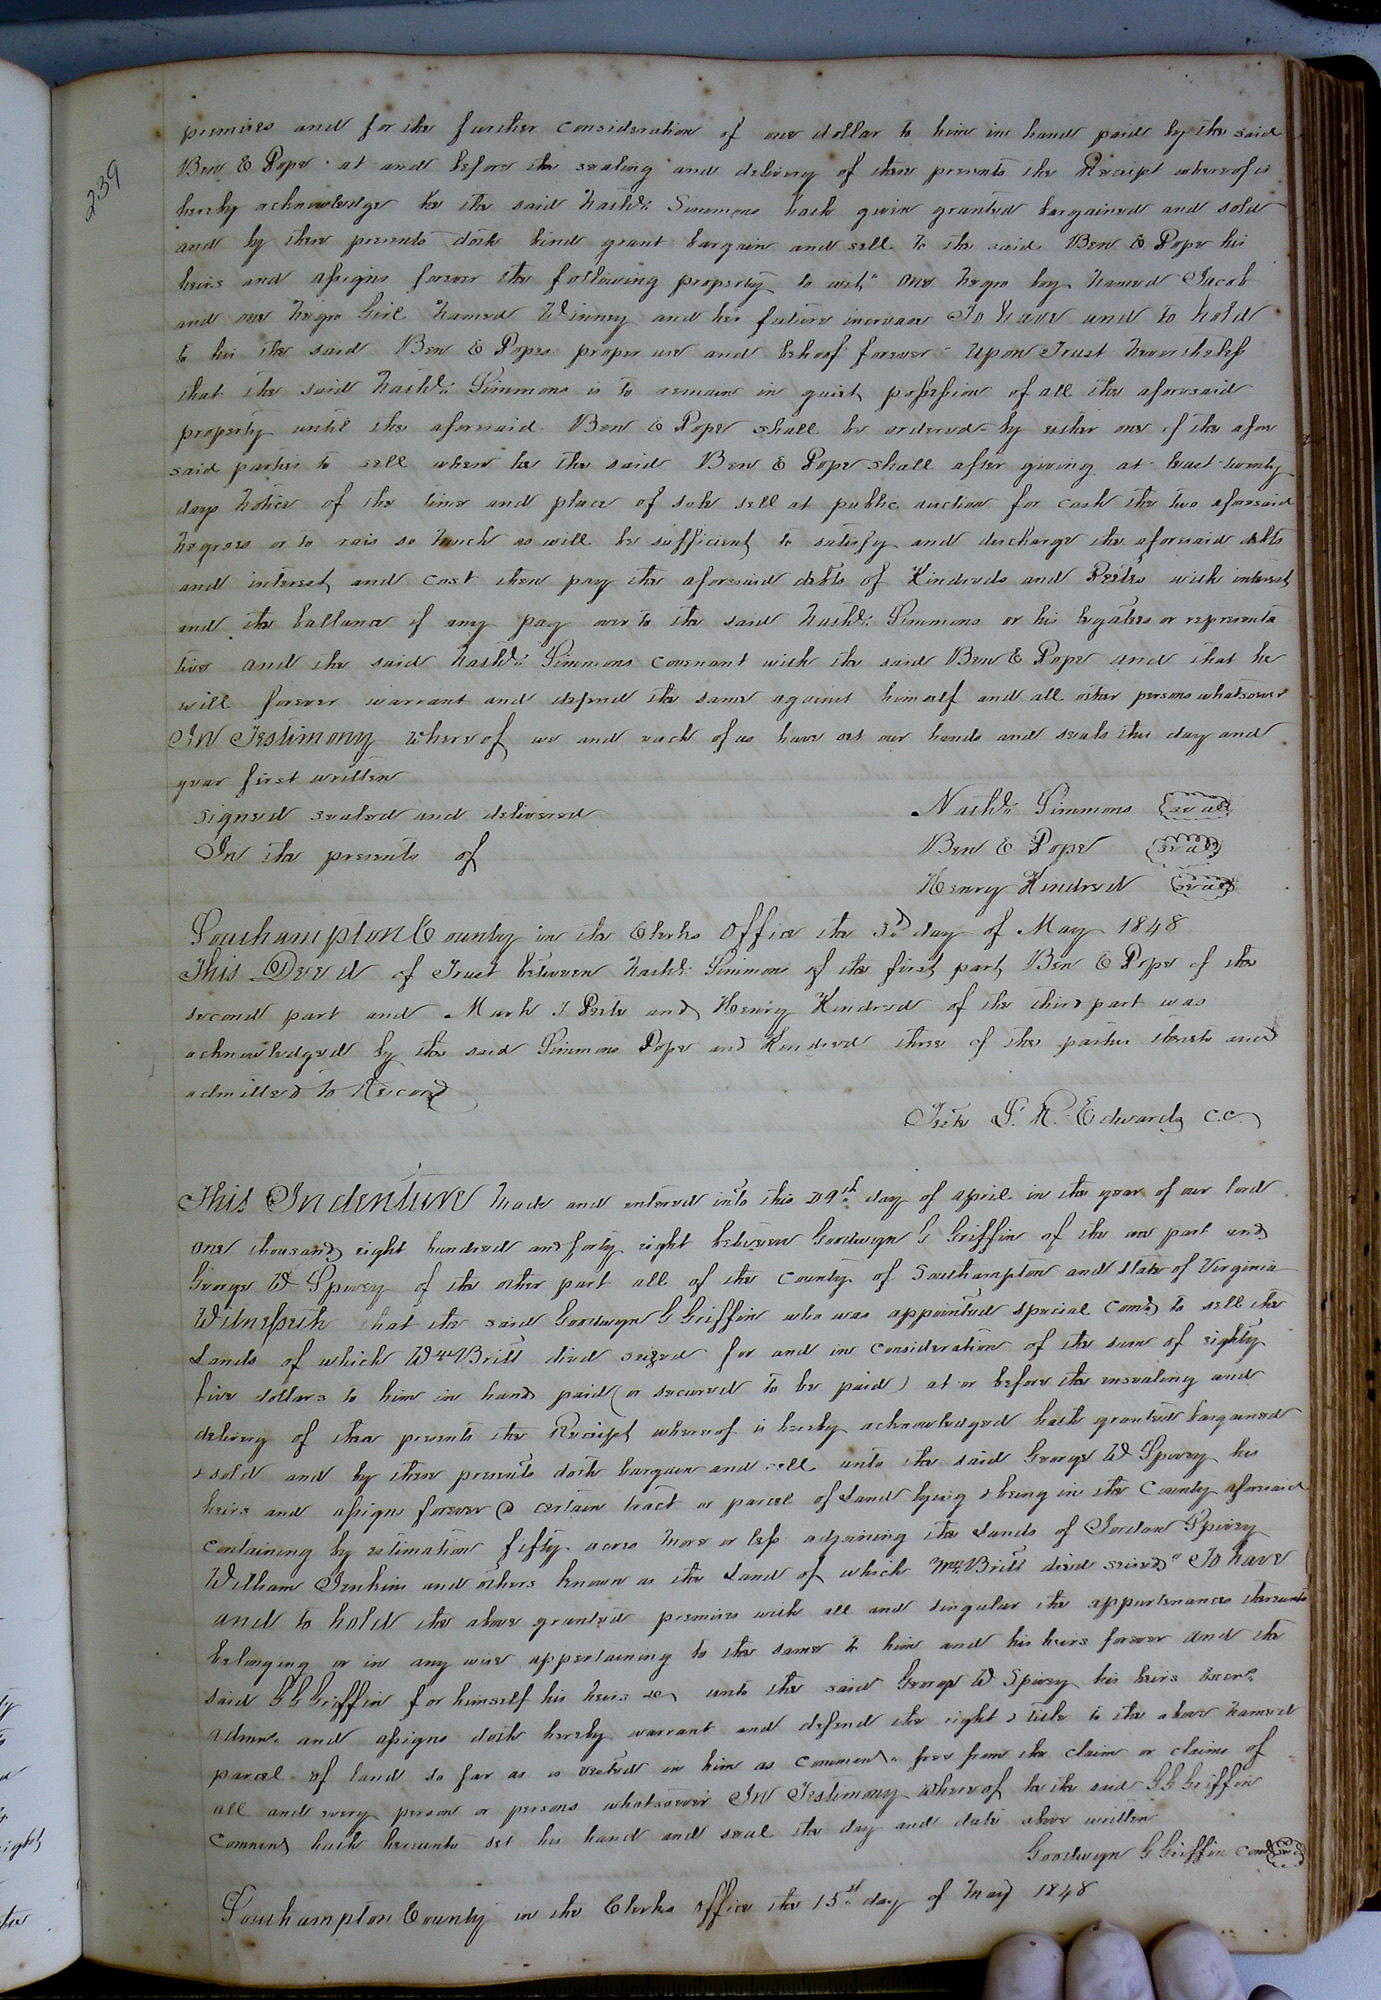 239
premises and for the further consideration of one dollar to him in hand paid by the said
Ben E Pope at and before the sealing and delivery of these presents the Receipt whereof is
hereby acknowledge he the said Nathl. Simmons hath given granted bargained and sold
and by these presents doth bind grant bargain and sell to the said Ben E Pope his
heirs and assigns forever the following property to wit" one negro boy named Jacob
and one negro Girl named Winney and her future increase To have and to hold
to his the said Ben E Popes proper use and behoof forever Upon Trust nevertheless
that the said Nathl. Simmons is to remain in quiet possession of all the aforesaid
property until the aforesaid Ben E Pope shall be ordered by either one of the afore
said parties to sell when he the said Ben E Pope shall after giving at least twenty
days notice of the time and place of sale sell at public auction for cash the two aforesaid
negroes or to rais so much as will be sufficient to satisfy and discharge the aforesaid debts
and interest and cost then pay the aforesaid debts of Kindreds and Peetes with interest
and the ballance if any pay over to the said Nathl. Simmons or his legatees or representa
tive and the said Nathl. Simmons covenant with the said Ben E Pope and that he
will forever warrant and defend the same against himself and all other persons whatsoever
In Testimony whereof we and each of us have set our hands and seals the day and
year first written
signed sealed and delivered Nathl. Simmons seal
In the presents of Ben E Pope seal
Henry Kindred seal
Southampton County in the Clerks Office the 3d day of May 1848
This Deed of Trust between Nathl. Simmons of the first part Ben E Pope of the
second part and Mark J Peete and Henry Kindred of the third part was
acknowledged by the said Simmons Pope and Kindred three of the parties thereto and
admitted to Record
Teste L. R. Edwards C.C.
This Indenture made and entered into this 29th day of april in the year of our lord
one thousand eight hundred and forty eight between Goodwyn G Griffin of the one part and
George W Spivey of the other part all of the County of Southampton and State of Virginia
Witnesseth that the said Goodwyn G Griffin who was appointed special Comr. to sell the
Lands of which Wm Britt died seized for and in consideration of the sum of eighty
five dollars to him in hand paid (or secured to be paid) at or before the ensealing and
delivery of these presents the Receipt whereof is hereby acknowledged hath granted bargained
& sold and by these presents doth bargain and sell unto the said George W Spivey his
heirs and assigns forever a certain tract or parcel of Land lying & being in the County aforesaid
containing by estimation fifty acres more or less adjoining the Lands of Jordan Spivey
William Jenkins and others known as the Land of which Wm. Britt died seized" To have
and to hold the above granted premises with all and singular the appurtenances thereunto
belonging or in any wise appertaining to the same to him and his heirs forever and the
said G G Griffin for himself his heirs &c unto the said George W Spivey his heirs Excrs.
admrs. and assigns doth hereby warrant and defend the right & title to the above named
parcel of land so far as is vested in him as Commr. free from the claim or claims of
all and every person or persons whatsoever In Testimony whereof he the said G G Griffin
Commr. hath hereunto set his hand and seal the day and date above written
Goodwyn G Griffin Comr
Southampton County in the Clerks office the 15st day of May 1848